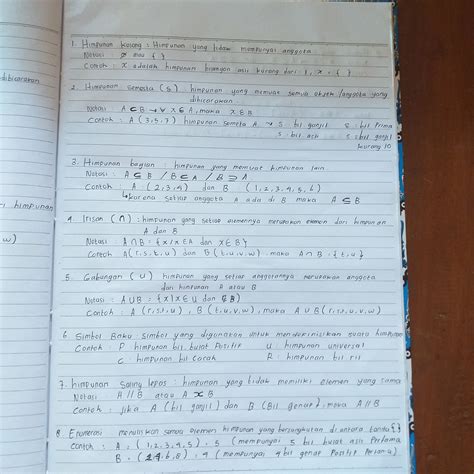 dibicarakan
himpunan
w)
1. Himpunan kosong : Himpunan yang tidak mempunyai anggota
Notasi : ∅ atau { }
Contoh : x adalah himpunan bilangan asli kurang dari 1, x = { }
2. Himpunan Semesta (S) himpunan yang memuat semua objek /anggota yang
dibicarakan
Notasi A ⊂ B → ∀ x ∈ A, maka x ∈ B
Contoh : A (3,5,7) himpunan semesta A → S = bil ganjil S = bil Prima
S = bil asli S = bil ganjil
kurang 10
3. Himpunan bagian : himpunan yang memuat himpunan lain.
Notasi : A ⊆ B / B ⊆ A / B ⊃ A
Contoh A (2,3,4) dan B (1,2,3,4,5,6)
↳ karena setiap anggota A ada di B maka A ⊆ B
4. Irisan (∩) : himpunan yang setiap elemennya merupakan elemen dari himpunan
A dan B
Notasi : A ∩ B = {x/x ∈ A dan x ∈ B}
Contoh A(r,s,t,u) dan B (t,u,v,w) maka A ∩ B = {t,u}
5. Gabungan (U) himpunan yang setiap anggotanya merupakan anggota
dari himpunan A atau B
Notasi : A U B = {x/x ∈ U dan ∈ B}
Contoh A = (r,s,t,u), B (t,u,v,w), maka A U B (r,s,t,u,v,w)
6 Simbol Baku simbol yang digunakan untuk mendefinisikan suatu himpunan
Contoh : P = himpunan bil. bulat Positif U : himpunan universal
C = himpunan bil Cacah R : himpunan bil. riil
7. himpunan Saling lepas : himpunan yang tidak memiliki elemen yang sama
Notasi A // B atau A
Contoh : Jika A (bil ganjil) dan B (Bil genap), maka A // B
8 Enumerasi menuliskan semua elemen himpunan yang bersangkutan di antara tanda { }
Contoh : A = (1,2,3,4,5) = 5 (mempunyai 5 bil bulat asli Pertama
B = (2,4,6,8) = 4 (mempunyai 4 bil genap Positif Pertama)